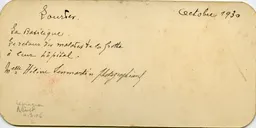 Lourdes Octobre 1930
La Basilique
Le retour des malades de la grotte
à leur hôpital.
Melle Hélène photographiant